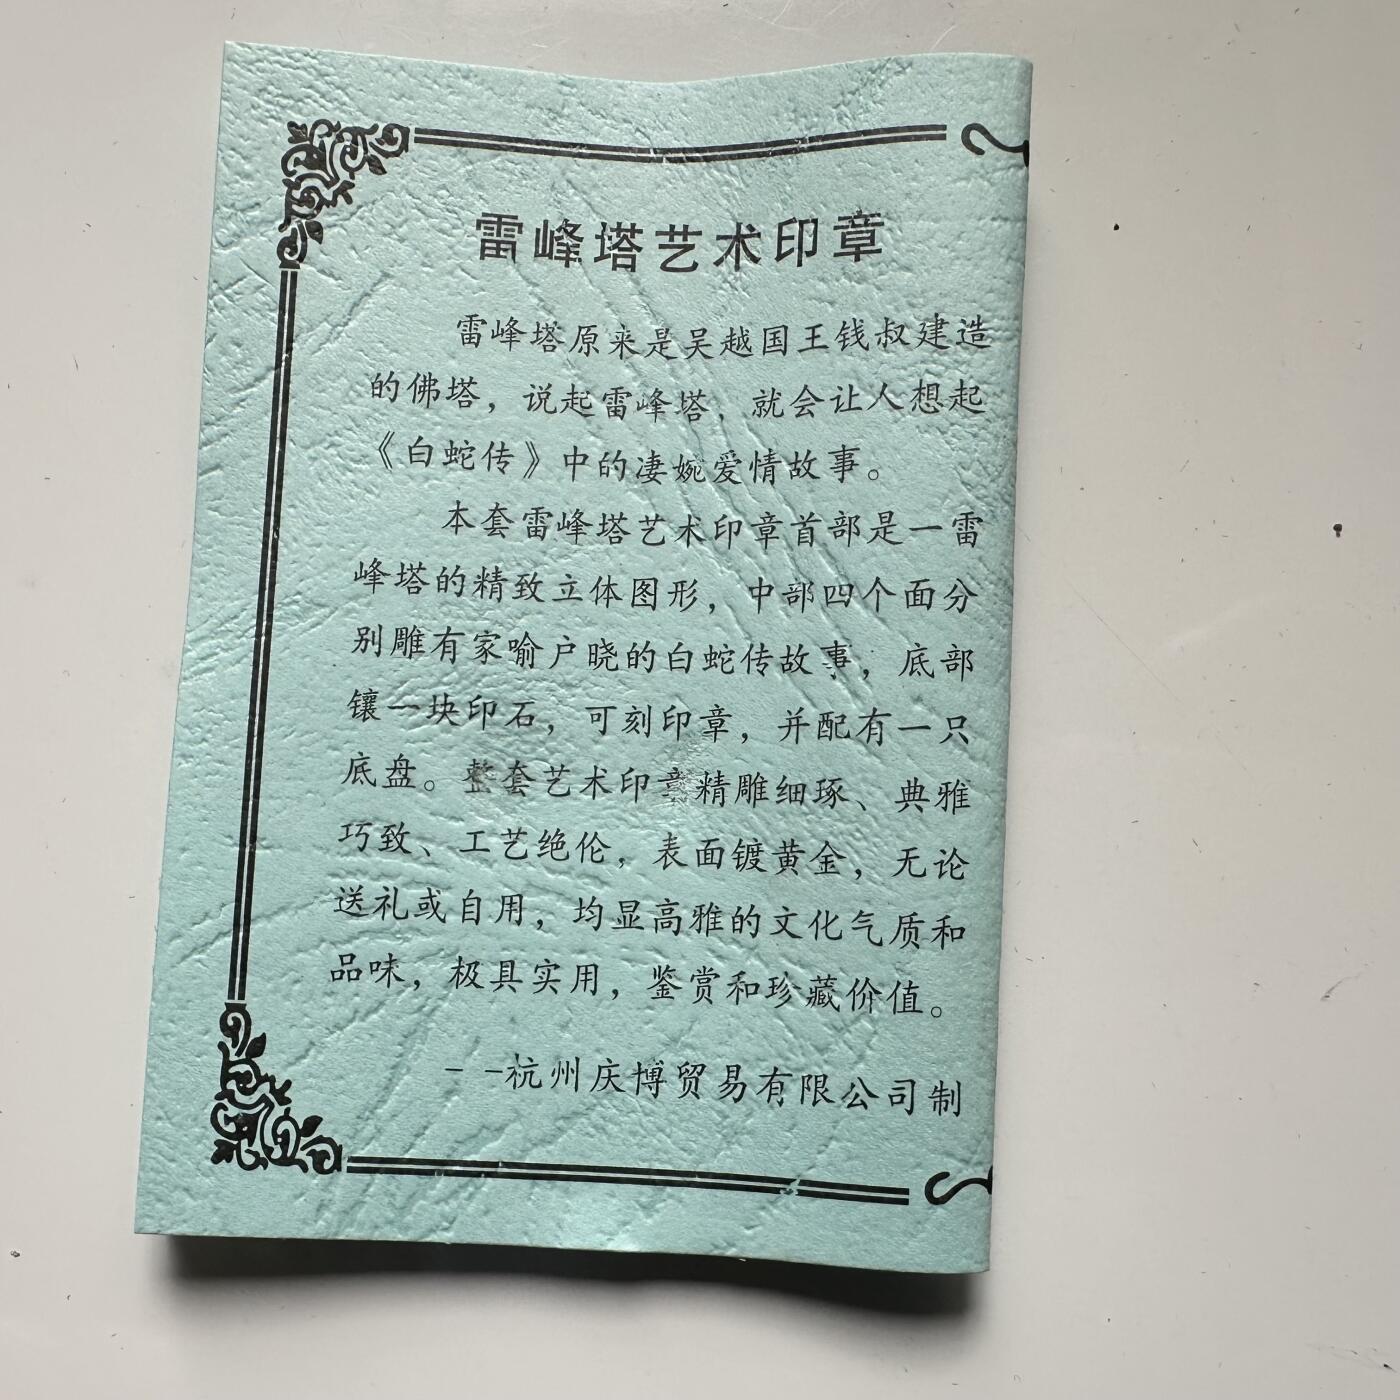 雷峰塔艺术印章
雷峰塔原来是吴越国王钱叔建造
的佛塔，说起雷峰塔，就会让人想起
《白蛇传》中的凄婉爱情故事。
本套雷峰塔艺术印章首部是一雷
峰塔的精致立体图形，中部四个面分
别雕有家喻户晓的白蛇传故事，底部
镶一块印石，可刻印章，并配有一只
底盘。整套艺术印章精雕细琢、典雅
巧致、工艺绝伦，表面镀黄金，无论
送礼或自用，均显高雅的文化气质和
品味，极具实用，鉴赏和珍藏价值。
--杭州庆博贸易有限公司制